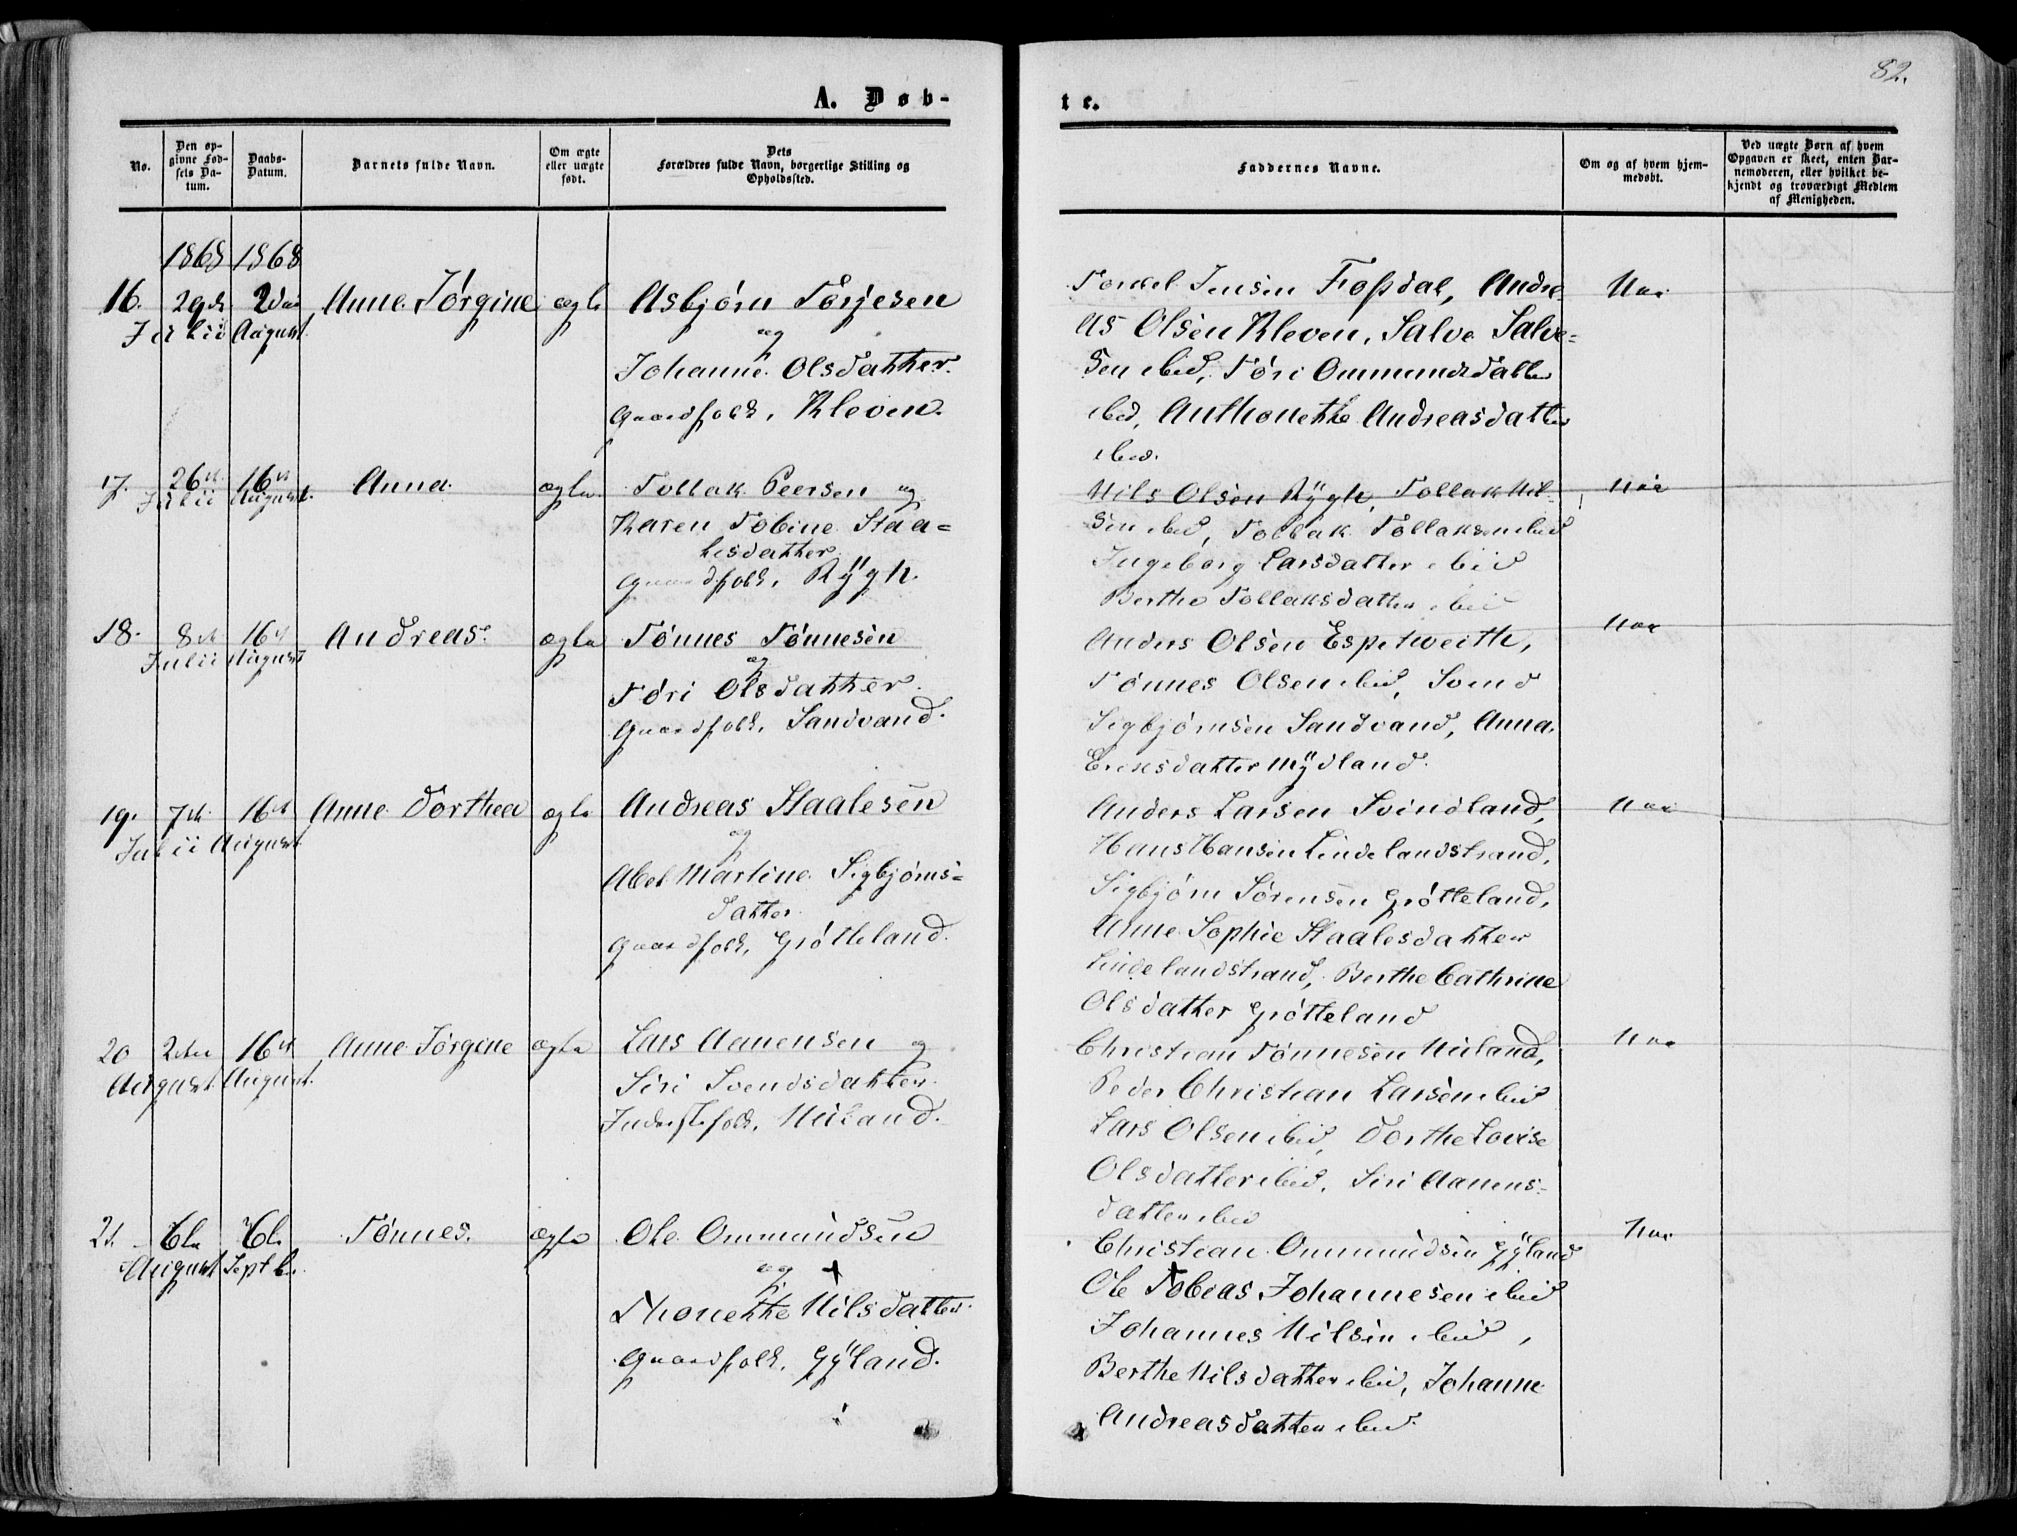 82.
A. Døb-
te.
No.
Den op-
givne Fød-
sels Da-
tum.
Daabs-
Datum.
Barnets fulde Navn.
Om ægte
eller uægte
født.
Dets
Forældres fulde Navn, borgerlige Stilling og
Opholdssted.
Faddernes Navne.
Om og af hvem hjem-
medøbt.
Ved uægte Børn af hvem
Opgaven er skeet, enten Bar-
nemoderen, eller hvilket be-
kjendt og troværdigt Medlem
af Menigheden.
1868 1868
16. 29de 2den Anne Jørgine ægte Asbjørn Torjesen
Julii August og
Johanne Olsdatter
Gaardfolk, Kleven.
Torkel Jensen Fossdal, Andre-
as Olsen Kleven, Salve Salve=
sen ibid, Tøri Ommundsdatter
ibid, Anthonette Andreasdatter
ibid.
17. 26de 16de Anna. ægte Tollak Peersen og
Julii August.
Karen Tobine Staa=
lesdatter
Gaardfolk, Rÿgh.
Nils Olsen Rÿgh, Tollak Nil-
sen ibid, Tollak Tollaksen ibid
Ingeborg Larsdatter ibid
Berthe Tollaksdatter ibid
18. 8de 16de Andreas. ægte Tønnes Tønnesen
Julii August og
Tøri Olsdatter
Gaardfolk, Sandvand.
Anders Olsen Espetweith,
Tønnes Olsen ibid, Svend
Sigbjørnsen Sandvand, Anna
Eriksdatter Mÿdland.
19. 7de 16de Anne Dorthea ægte Andreas Staalesen
Julii August og
Abel Martine Sigbjørns=
datter
Gaardfolk, Grøtteland.
Anders Larsen Svindland,
Hans Hansen Lindelandstrand,
Sigbjørn Sørensen Grøtteland,
Anne Sophie Staalesdatter
Lindelandstrand, Berthe Cathrine
Olsdatter Grøtteland
20 2den 16de Anne Jørgine ægte Lars Aanensen og
August August.
Siri Svendsdatter
Inderstfolk, Nuland.
Christian Tønnesen Nuland,
Peder Christian Larsen ibid
Lars Olsen ibid, Dorthe Lovise
Olsdatter ibid, Siri Aanens-
datter ibid
21. 6te 6te Tønnes. ægte Ole Ommundsen
August Septbr. og
Thonette Nilsdatter
Gaardfolk, Gÿland.
Christian Ommundsen Gÿland
Ole Tobias Johannesen ibid
Johannes Nilsen ibid,
Berthe Nilsdatter ibid, Johanne
Andreasdatter ibid